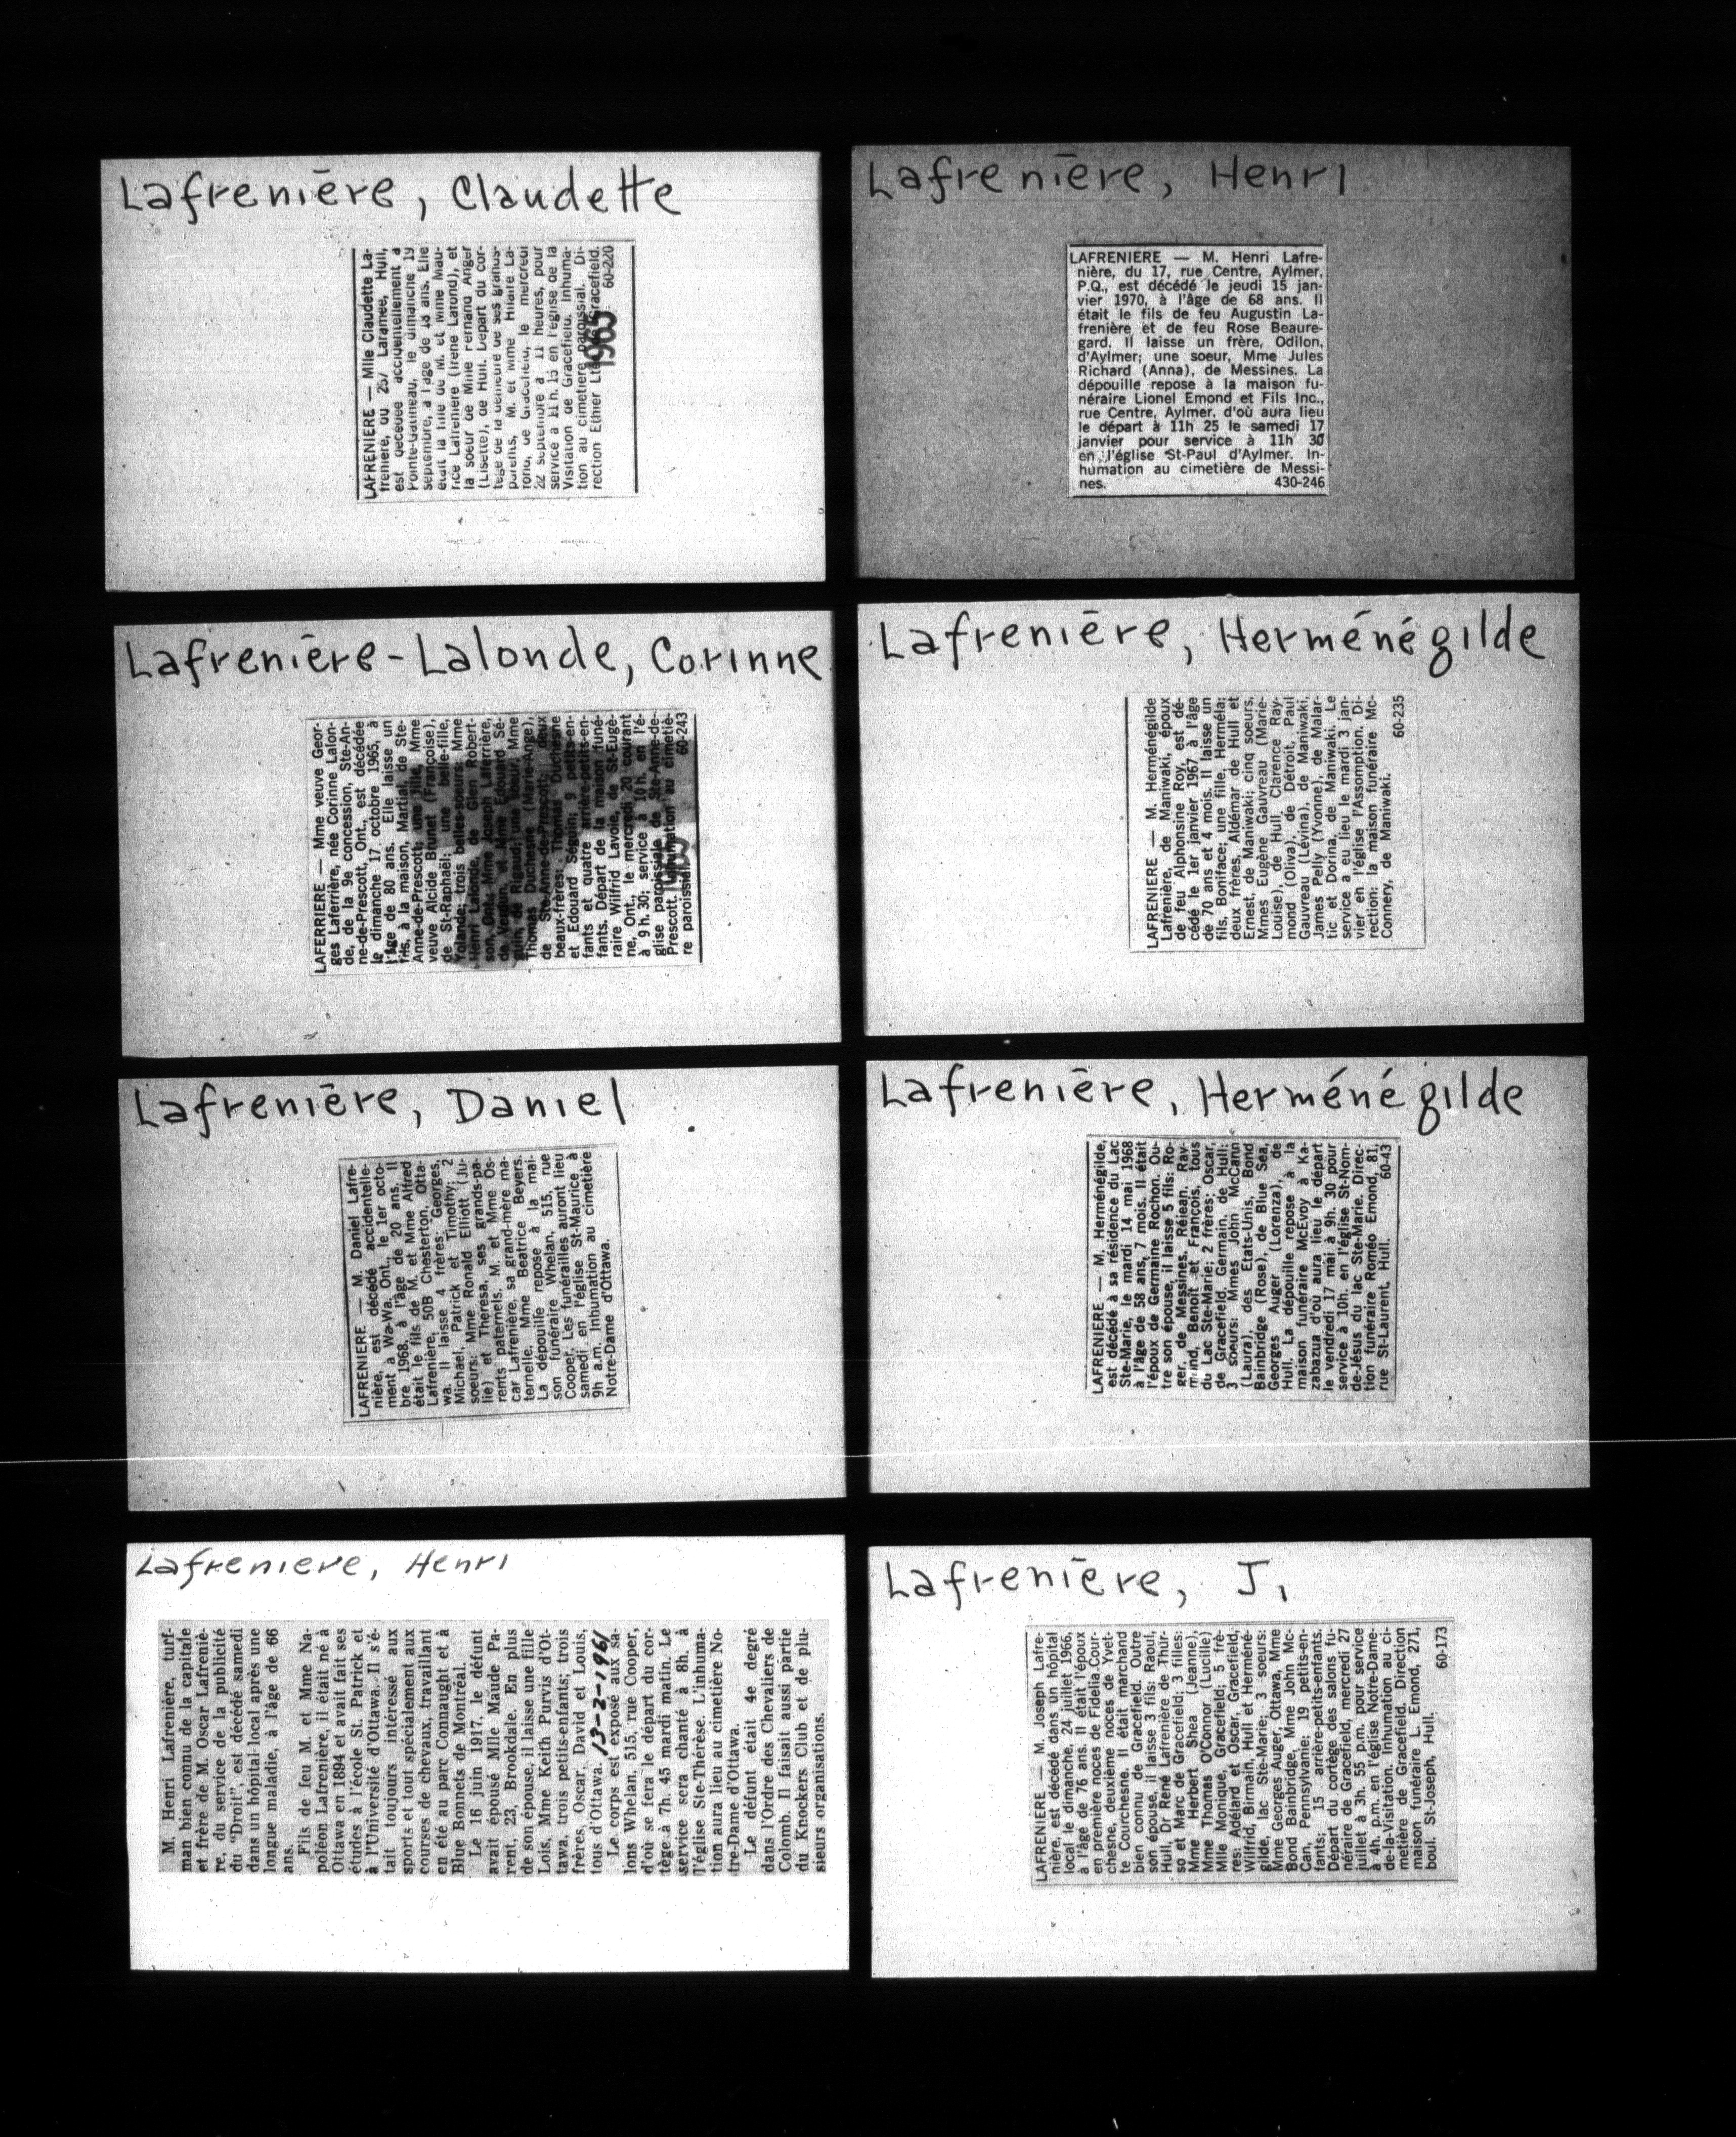 Lafrenière, Claudette
LAFRENIERE — Mlle Claudette La-
frenière, du 257 Laramée, Hull,
est décédée accidentellement à
Pointe-Gatineau, le dimanche 19
septembre, à l'âge de 18 ans. Elle
était la fille de M. et Mme Mau-
rice Lafrenière (Irène Lafond), et
la soeur de Mme Fernand Anger
(Lisette), de Hull. Départ du cor-
tège de la demeure de ses grands-
parents, M. et Mme Hilaire La-
fond, de Gracefield, le mercredi
22 septembre à 11 heures, pour
service à 11 h. 15 en l'église de la
Visitation de Gracefield. Inhuma-
tion au cimetière paroissial. Di-
rection Ethier Ltée Gracefield.
1965 60-220
Lafrenière, Henri
LAFRENIERE — M. Henri Lafre-
nière, du 17, rue Centre, Aylmer,
P.Q., est décédé le jeudi 15 jan-
vier 1970, à l'âge de 68 ans. Il
était le fils de feu Augustin La-
frenière et de feu Rose Beaure-
gard. Il laisse un frère, Odilon,
d'Aylmer; une soeur, Mme Jules
Richard (Anna), de Messines. La
dépouille repose à la maison fu-
néraire Lionel Emond et Fils Inc.,
rue Centre, Aylmer, d'où aura lieu
le départ à 11h 25 le samedi 17
janvier pour service à 11h 30
en l'église St-Paul d'Aylmer. In-
humation au cimetière de Messi-
nes. 430-246
Lafrenière-Lalonde, Corinne
LAFERRIERE — Mme veuve Geor-
ges Laferrière, née Corinne Lalon-
de, de la 9e concession, Ste-An-
ne-de-Prescott, Ont., est décédée
le dimanche 17 octobre 1965, à
l'âge de 80 ans. Elle laisse un
fils, à la maison, Martial, de Ste-
Anne-de-Prescott; une fille, Mme
veuve Alcide Brunet (Françoise),
de St-Raphaël; une belle-fille,
Yolande; trois belles-soeurs: Mme
Henri Lalonde, de Glen Robert-
son, Ont., Mme Joseph Laferrière,
de Verdun, et Mme Edouard Sé-
guin, de Rigaud; une soeur, Mme
Thomas Duchesne (Marie-Ange),
de Ste-Anne-de-Prescott; deux
beaux-frères: Thomas Duchesne
et Edouard Séguin; 9 petits-en-
fants et quatre arrière-petits-en-
fants. Départ de la maison funé-
raire Wilfrid Lavoie, de St-Eugè-
ne, Ont., le mercredi 20 courant
à 9 h. 30; service à 10 h. en l'é-
glise paroissiale de Ste-Anne-de-
Prescott. Inhumation au cimetiè-
re paroissial. 60-243
Lafrenière, Herménégilde
LAFRENIERE — M. Herménégilde
Lafrenière, de Maniwaki, époux
de feu Alphonsine Roy, est dé-
cédé le 1er janvier 1967 à l'âge
de 70 ans et 4 mois. Il laisse un
fils, Boniface; une fille, Herméla;
deux frères, Aldémar de Hull et
Ernest, de Maniwaki; cinq soeurs,
Mmes Eugène Gauvreau (Marie-
Louise), de Hull, Clarence Ray-
mond (Oliva), de Détroit, Paul
Gauvreau (Lévina), de Maniwaki,
James Pelly (Yvonne), de Malar-
tic et Dorina, de Maniwaki. Le
service a eu lieu le mardi 3 jan-
vier en l'église l'Assomption. Di-
rection: la maison funéraire Mc-
Connery, de Maniwaki.
60-235
Lafrenière, Daniel
LAFRENIERE — M. Daniel Lafre-
nière, est décédé accidentelle-
ment à Wa-Wa, Ont., le 1er octo-
bre 1968, à l'âge de 20 ans. Il
était le fils de M. et Mme Alfred
Lafrenière, 50B Chesterton, Otta-
wa. Il laisse 4 frères: Georges,
Michael, Patrick et Timothy; 2
soeurs: Mme Ronald Elliott (Ju-
lie) et Theresa, ses grands-pa-
rents paternels, M. et Mme Os-
car Lafrenière, sa grand-mère ma-
ternelle, Mme Beatrice Beyers.
La dépouille repose à la mai-
son funéraire Whelan, 515, rue
Cooper. Les funérailles auront lieu
samedi en l'église St-Maurice à
9h a.m. Inhumation au cimetière
Notre-Dame d'Ottawa.
Lafrenière, Herménégilde
LAFRENIERE — M. Herménégilde,
est décédé à sa résidence du Lac
Ste-Marie, le mardi 14 mai 1968
à l'âge de 58 ans, 7 mois. Il était
l'époux de Germaine Rochon. Ou-
tre son épouse, il laisse 5 fils: Ro-
ger, de Messines, Réjean, Ray-
mond, Benoît et François, tous
du Lac Ste-Marie; 2 frères: Oscar,
de Gracefield, Germain, de Hull;
3 soeurs: Mmes John McCann
(Laura), des Etats-Unis, Bond
Bainbridge (Rose), de Blue Sea,
Georges Auger (Lorenza), de
Hull. La dépouille repose à la
maison funéraire McEvoy à Ka-
zabazua d'où aura lieu le départ
le vendredi 17 mai à 9h. 30 pour
service à 10h. en l'église St-Nom-
de-Jésus du lac Ste-Marie. Direc-
tion funéraire Roméo Emond, 81,
rue St-Laurent, Hull. 60-43
Lafreniere, Henri
M. Henri Lafrenière, turf-
man bien connu de la capitale
et frère de M. Oscar Lafreniè-
re, du service de la publicité
du "Droit", est décédé samedi
dans un hôpital local après une
longue maladie, à l'âge de 66
ans.
Fils de feu M. et Mme Na-
poléon Lafrenière, il était né à
Ottawa en 1894 et avait fait ses
études à l'école St. Patrick et
à l'Université d'Ottawa. Il s'é-
tait toujours intéressé aux
sports et tout spécialement aux
courses de chevaux, travaillant
en été au parc Connaught et à
Blue Bonnets de Montréal.
Le 16 juin 1917, le défunt
avait épousé Mlle Maude Pa-
rent, 23, Brookdale. En plus
de son épouse, il laisse une fille
Lois, Mme Keith Purvis d'Ot-
tawa, trois petits-enfants; trois
frères, Oscar, David et Louis,
tous d'Ottawa. 13-2-1961
Le corps est exposé aux sa-
lons Whelan, 515, rue Cooper,
d'où se fera le départ du cor-
tège à 7h. 45 mardi matin. Le
service sera chanté à 8h. à
l'église Ste-Thérèse. L'inhuma-
tion aura lieu au cimetière No-
tre-Dame d'Ottawa.
Le défunt était 4e degré
dans l'Ordre des Chevaliers de
Colomb. Il faisait aussi partie
du Knockers Club et de plu-
sieurs organisations.
Lafrenière, J.
LAFRENIERE — M. Joseph Lafre-
nière, est décédé dans un hôpital
local le dimanche, 24 juillet 1966,
à l'âge de 76 ans. Il était l'époux
en première noces de Fidelia Cour-
chesne, deuxième noces de Yvet-
te Courchesne. Il était marchand
bien connu de Gracefield. Outre
son épouse, il laisse 3 fils: Raoul,
Hull, Dr René Lafrenière de Thur-
so et Marc de Gracefield; 3 filles:
Mme Herbert Shea (Jeanne),
Mme Thomas O'Connor (Lucille)
Mlle Monique, Gracefield; 5 frè-
res: Adélard et Oscar, Gracefield,
Wilfrid, Birmain, Hull et Herméné-
gilde, lac Ste-Marie; 3 soeurs:
Mme Georges Auger, Ottawa, Mme
Bond Bainbridge, Mme John Mc-
Can, Pennsylvanie; 19 petits-en-
fants; 15 arrière-petits-enfants.
Départ du cortège des salons fu-
néraire de Gracefield, mercredi 27
juillet à 3h. 55 p.m. pour service
à 4h. p.m. en l'église Notre-Dame-
de-la-Visitation. Inhumation au ci-
metière de Gracefield. Direction
maison funéraire L. Emond, 271,
boul. St-Joseph, Hull.
60-173